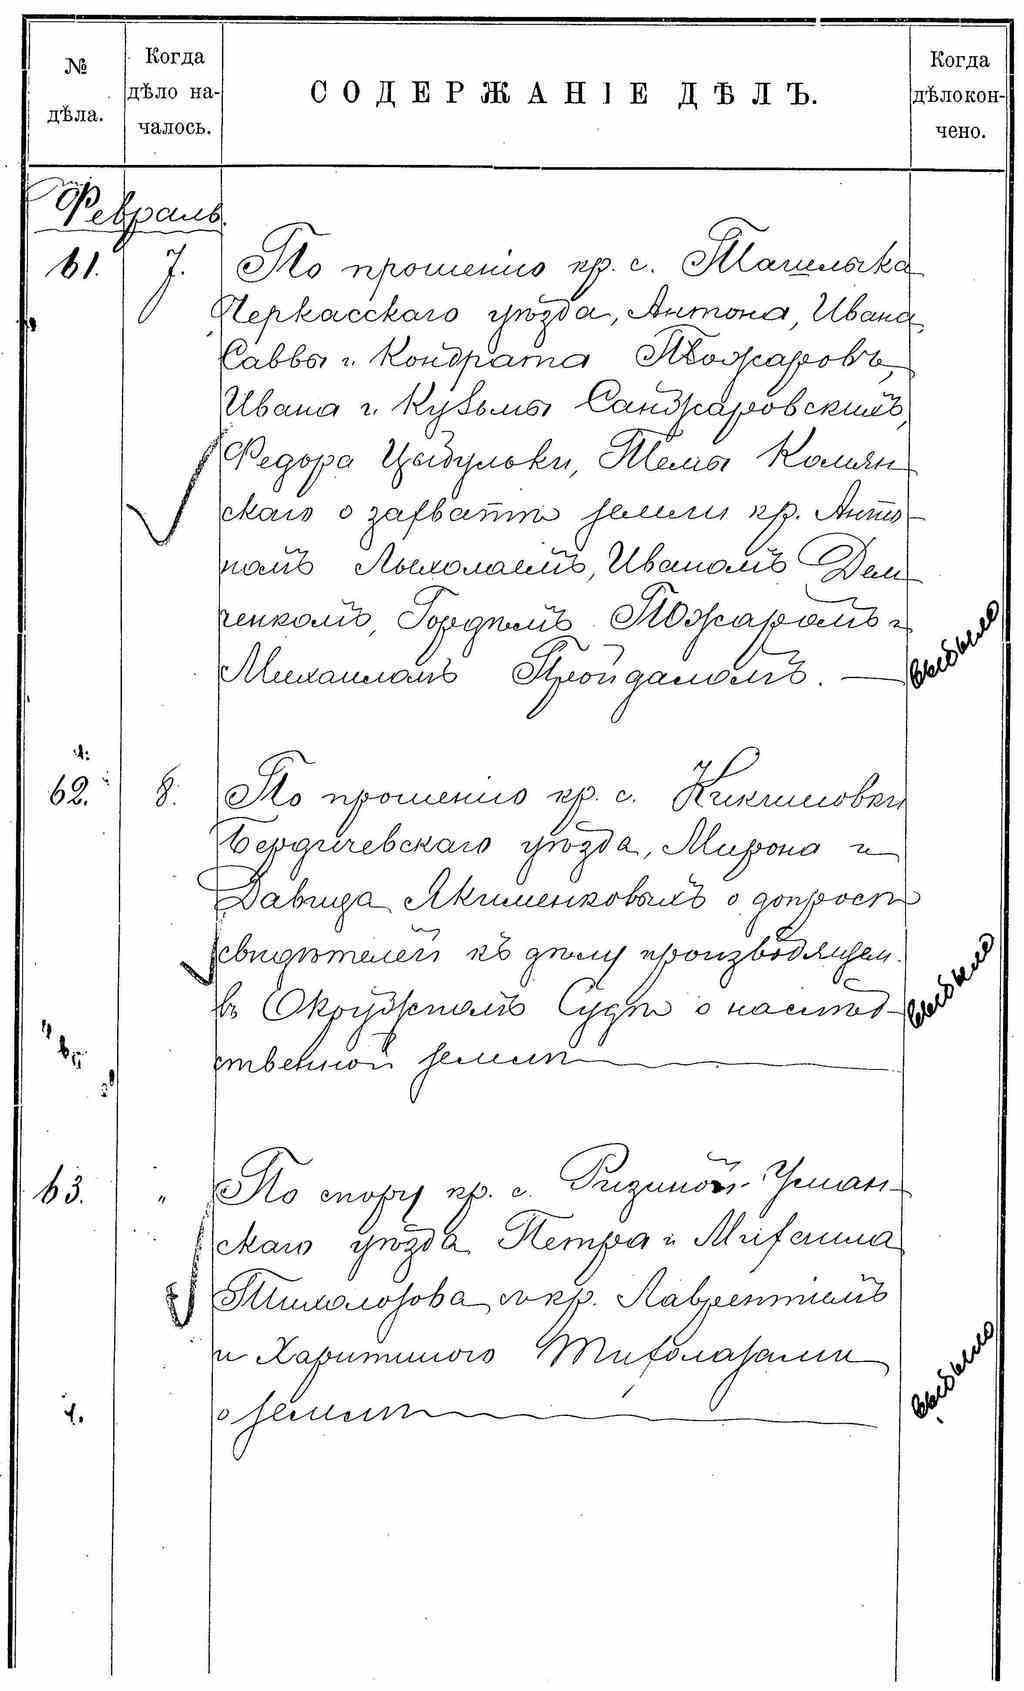 № дѣла.
Когда дѣло началось.
СОДЕРЖАНІЕ ДѢЛЪ.
Когда дѣло кончено.
Февраль.
61. 7. По прошенію кр. с. Ташлыка
Черкасскаго уѣзда, Антона, Ивана,
Саввы и Кондрата Пожаровъ,
Ивана и Кузьмы Санжаровскихъ,
Федора Цыбульки, Темы Колян-
скаго о захватѣ земли кр. Анто-
номъ Лыхолаемъ, Иваномъ Дем-
ченкомъ, Гордѣемъ Пожаромъ и
Михаиломъ Пройдаломъ. — выбыло
62. 8. По прошенію кр. с. Кикишовки
Бердичевскаго уѣзда, Мирона и
Давида Якименковыхъ о допросѣ
свидѣтелей къ дѣлу производящем.
въ Окружномъ Судѣ о наслѣд- выбыло
ственной землѣ
63. " По спору кр. с. Ризиной Уман-
скаго уѣзда Петра и Михаила
Тихолозова съ кр. Лаврентіемъ
и Харитиною Тихолазами
о землѣ выбыло